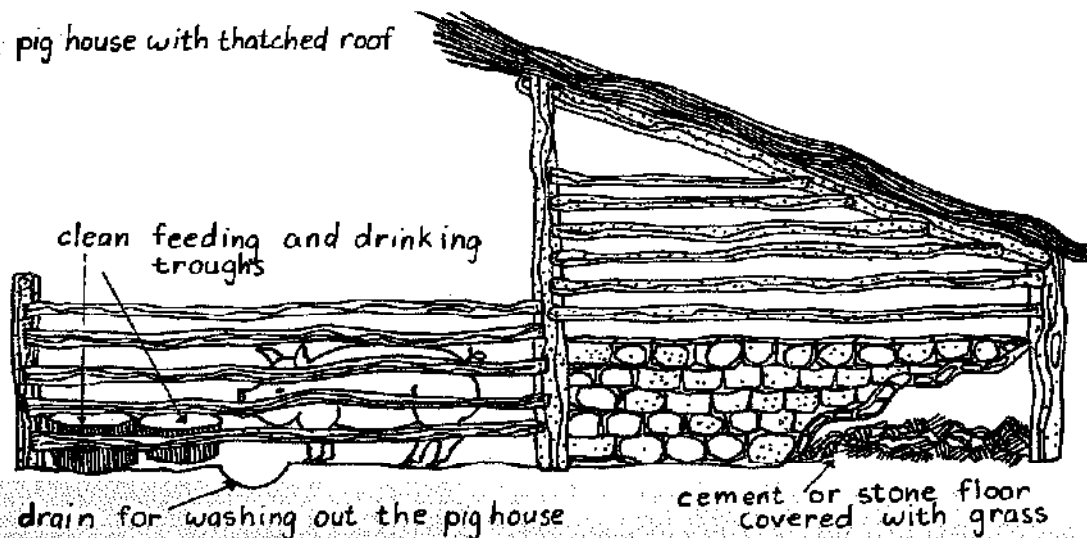 pig house with thatched roof
clean feeding and drinking
troughs
drain for washing out the pig house
cement or stone floor
covered with grass